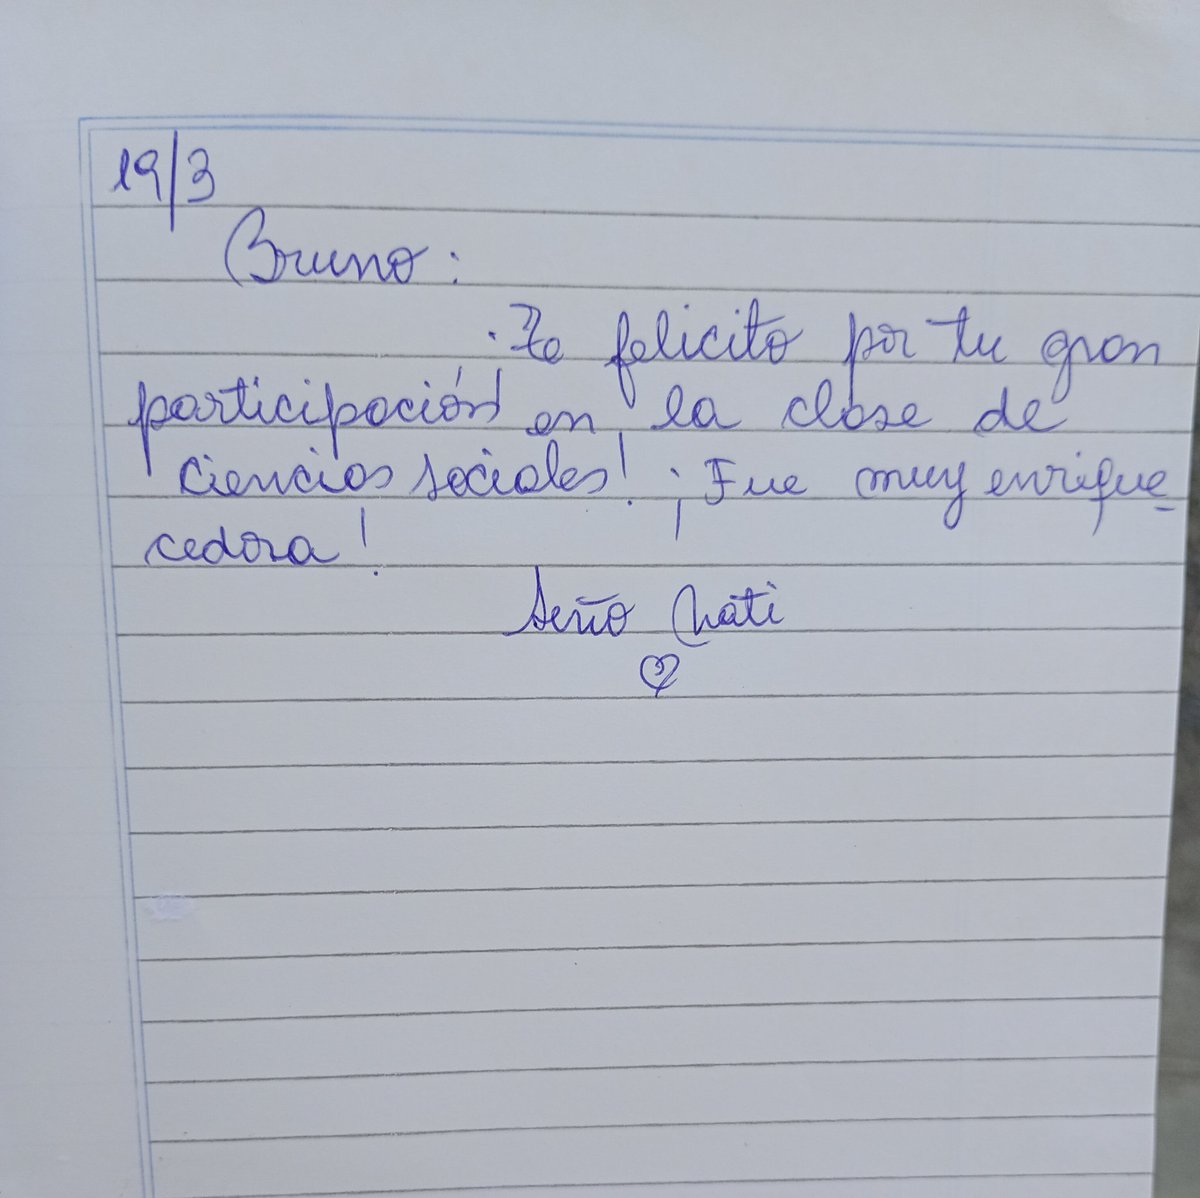 19/3
Bruno:
¡Te felicito por tu gran
participación en la clase de
ciencias sociales! ¡Fue muy enrique
cedora!
Seño Nati